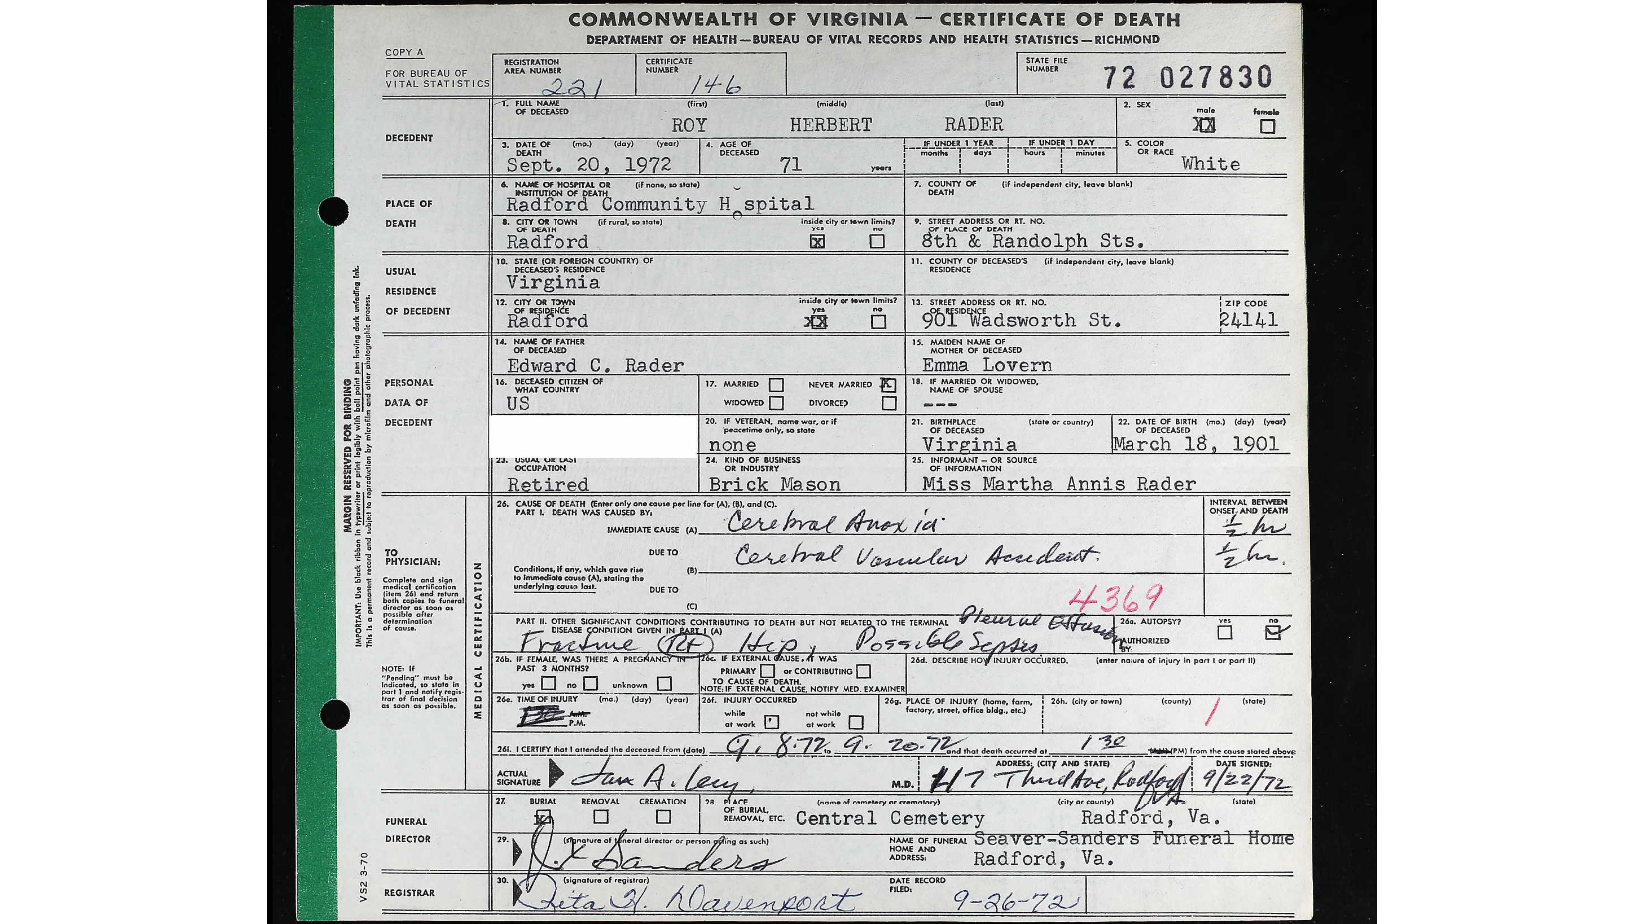 COMMONWEALTH OF VIRGINIA — CERTIFICATE OF DEATH
DEPARTMENT OF HEALTH—BUREAU OF VITAL RECORDS AND HEALTH STATISTICS—RICHMOND
COPY A
FOR BUREAU OF
VITAL STATISTICS
REGISTRATION
AREA NUMBER 221
CERTIFICATE
NUMBER 146
STATE FILE
NUMBER 72 027830
DECEDENT
1. FULL NAME (first) (middle) (last)
OF DECEASED
ROY HERBERT RADER
2. SEX male female
XX
3. DATE OF (mo.) (day) (year)
DEATH
Sept. 20, 1972
4. AGE OF
DECEASED
71 years
IF UNDER 1 YEAR
months days
IF UNDER 1 DAY
hours minutes
5. COLOR
OR RACE
White
PLACE OF
DEATH
6. NAME OF HOSPITAL OR (if none, so state)
INSTITUTION OF DEATH
Radford Community Hospital
7. COUNTY OF (if independent city, leave blank)
DEATH
8. CITY OR TOWN (if rural, so state) inside city or town limits?
OF DEATH yes no
Radford X
9. STREET ADDRESS OR RT. NO.
OF PLACE OF DEATH
8th & Randolph Sts.
USUAL
RESIDENCE
OF DECEDENT
10. STATE (OR FOREIGN COUNTRY) OF
DECEASED'S RESIDENCE
Virginia
11. COUNTY OF DECEASED'S (if independent city, leave blank)
RESIDENCE
12. CITY OR TOWN inside city or town limits?
OF RESIDENCE yes no
Radford XX
13. STREET ADDRESS OR RT. NO.
OF RESIDENCE
901 Wadsworth St.
ZIP CODE
24141
PERSONAL
DATA OF
DECEDENT
14. NAME OF FATHER
OF DECEASED
Edward C. Rader
15. MAIDEN NAME OF
MOTHER OF DECEASED
Emma Lovern
16. DECEASED CITIZEN OF
WHAT COUNTRY
US
17. MARRIED NEVER MARRIED X
WIDOWED DIVORCED
18. IF MARRIED OR WIDOWED,
NAME OF SPOUSE
---
20. IF VETERAN, name war, or if
peacetime only, so state
none
21. BIRTHPLACE (state or country)
OF DECEASED
Virginia
22. DATE OF BIRTH (mo.) (day) (year)
OF DECEASED
March 18, 1901
23. USUAL OR LAST
OCCUPATION
Retired
24. KIND OF BUSINESS
OR INDUSTRY
Brick Mason
25. INFORMANT – OR SOURCE
OF INFORMATION
Miss Martha Annis Rader
MARGIN RESERVED FOR BINDING
IMPORTANT: Use black ribbon in typewriter or print legibly with ball point pen having dark unfading ink.
This is a permanent record and subject to reproduction by microfilm and other photographic process.
TO
PHYSICIAN:
Complete and sign
medical certification
(item 26) and return
both copies to funeral
director as soon as
possible after
determination
of cause.
NOTE: IF
"Pending" must be
indicated, so state in
part 1 and notify regis-
trar of final decision
as soon as possible.
MEDICAL CERTIFICATION
26. CAUSE OF DEATH (Enter only one cause per line for (A), (B), and (C).
PART I. DEATH WAS CAUSED BY:
INTERVAL BETWEEN
ONSET AND DEATH
IMMEDIATE CAUSE (A) Cerebral Anoxia ½ hr
DUE TO
(B) Cerebral Vascular Accident. ½ hr.
Conditions, if any, which gave rise
to immediate cause (A), stating the
underlying cause last.
DUE TO
(C)
4369
PART II. OTHER SIGNIFICANT CONDITIONS CONTRIBUTING TO DEATH BUT NOT RELATED TO THE TERMINAL
DISEASE CONDITION GIVEN IN PART I (A)
Pleural Effusion
Fracture Rt Hip, Possible Sepsis
26a. AUTOPSY? yes no
AUTHORIZED
BY:
26b. IF FEMALE, WAS THERE A PREGNANCY IN
PAST 3 MONTHS?
yes no unknown
26c. IF EXTERNAL CAUSE, IT WAS
PRIMARY or CONTRIBUTING
TO CAUSE OF DEATH.
NOTE: IF EXTERNAL CAUSE, NOTIFY MED. EXAMINER
26d. DESCRIBE HOW INJURY OCCURRED. (enter nature of injury in part I or part II)
26e. TIME OF INJURY (mo.) (day) (year)
A.M.
P.M.
26f. INJURY OCCURRED
while
at work
not while
at work
26g. PLACE OF INJURY (home, farm,
factory, street, office bldg., etc.)
26h. (city or town) (county) (state)
26i. I CERTIFY that I attended the deceased from (date) 9. 8.72 to 9. 20.72 and that death occurred at 1 30 (PM) from the cause stated above
ACTUAL
SIGNATURE
M.D.
ADDRESS: (CITY AND STATE)
117 Third Ave, Radford VA
DATE SIGNED:
9/22/72
FUNERAL
DIRECTOR
27. BURIAL REMOVAL CREMATION
28. PLACE (name of cemetery or crematory) (city or county) (state)
OF BURIAL,
REMOVAL, ETC. Central Cemetery Radford, Va.
29. (signature of funeral director or person acting as such)
Sanders
NAME OF FUNERAL
HOME AND
ADDRESS:
Seaver-Sanders Funeral Home
Radford, Va.
REGISTRAR
30. (signature of registrar)
Rita H. Davenport
DATE RECORD
FILED:
9-26-72
VS2 3-70